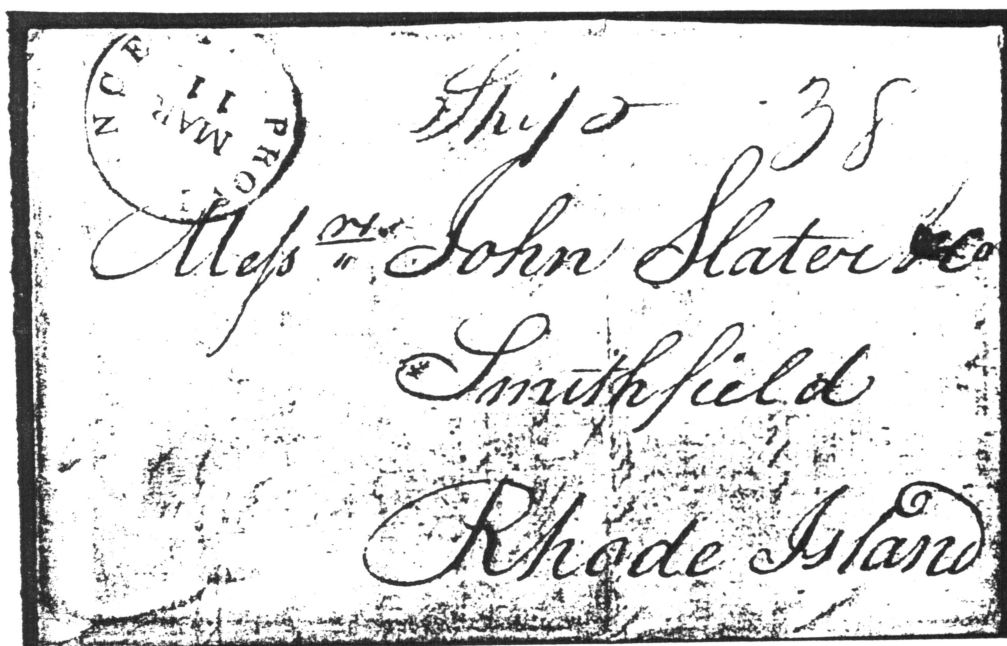 PROV NCE
MAR
11
Ship 38
Meſsrs John Slater & Co
Smithfield
Rhode Island